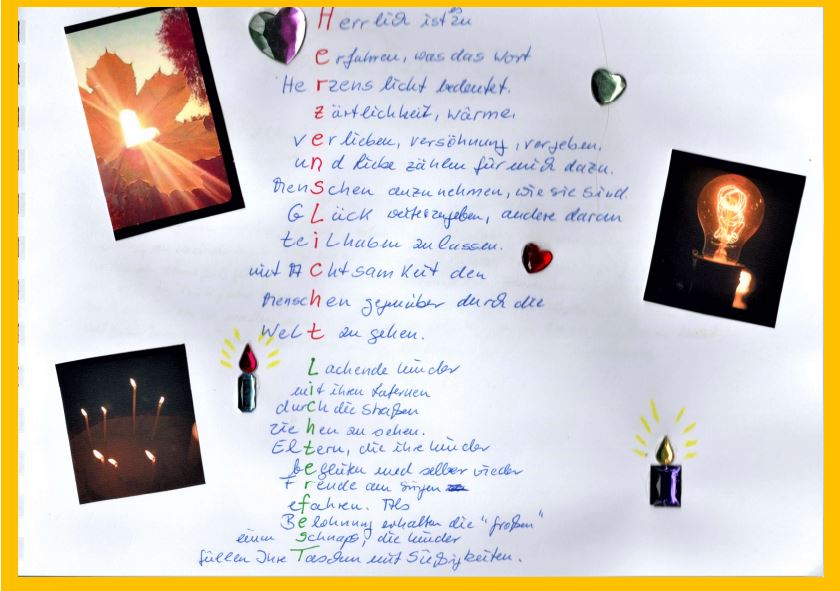 Herrlich ist zu
erfahren, was das Wort
Herzenslicht bedeutet.
zärtlichkeit, wärme,
verlieben, versöhnung, vergeben,
und Liebe zählen für mich dazu.
Menschen anzunehmen, wie sie sind.
GLück weiterzugeben, andere daran
teiLhaben zu lassen.
mit AchtsamKeit den
Menschen gegenüber durch die
Welt zu gehen.
Lachende kinder
mit ihren Laternen
durch die Straßen
ziehen zu sehen.
Eltern, die ihre kinder
begleiten und selber wieder
Freude am singen
efahren. Als
Belohnung erhalten die "großen"
einen schnaps, die kinder
füllen Ihre Taschen mit Süßigkeiten.